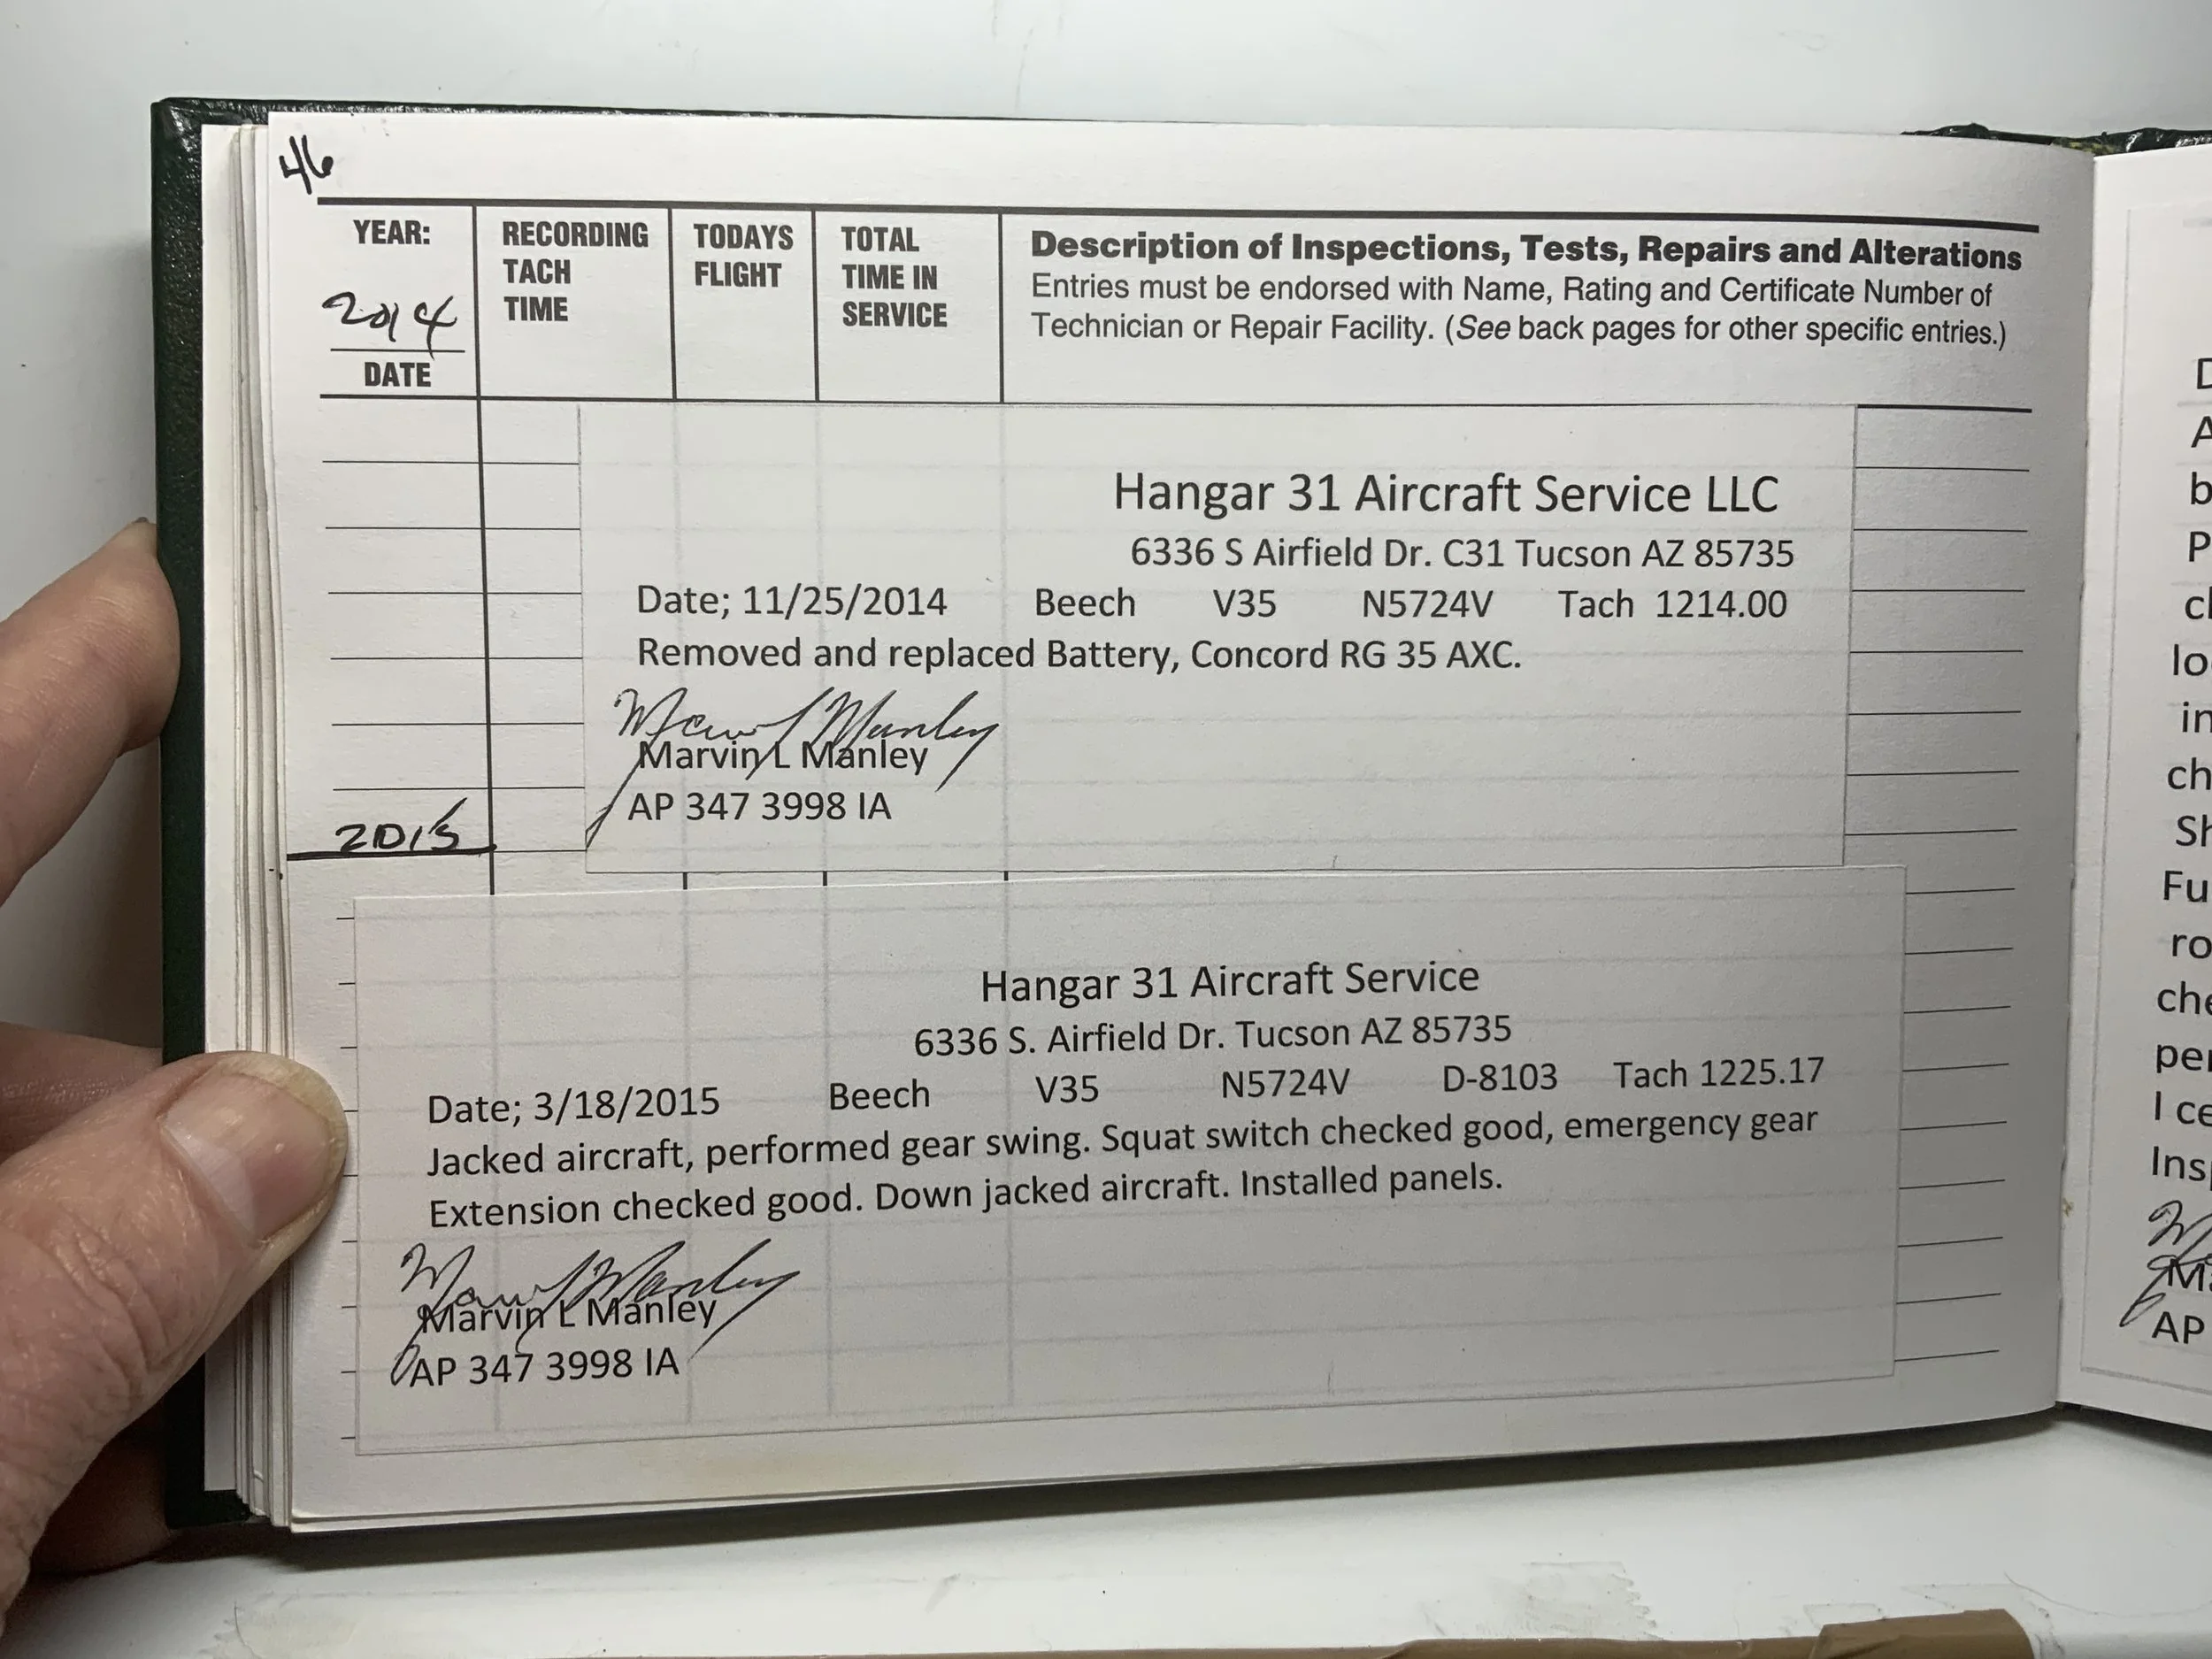 46
YEAR:
2014
DATE
RECORDING
TACH
TIME
TODAYS
FLIGHT
TOTAL
TIME IN
SERVICE
Description of Inspections, Tests, Repairs and Alterations
Entries must be endorsed with Name, Rating and Certificate Number of
Technician or Repair Facility. (See back pages for other specific entries.)
Hangar 31 Aircraft Service LLC
6336 S Airfield Dr. C31 Tucson AZ 85735
Date; 11/25/2014 Beech V35 N5724V Tach 1214.00
Removed and replaced Battery, Concord RG 35 AXC.
Marvin L Manley
Marvin L Manley
AP 347 3998 IA
2015
Hangar 31 Aircraft Service
6336 S. Airfield Dr. Tucson AZ 85735
Date; 3/18/2015 Beech V35 N5724V D-8103 Tach 1225.17
Jacked aircraft, performed gear swing. Squat switch checked good, emergency gear
Extension checked good. Down jacked aircraft. Installed panels.
Marvin L Manley
Marvin L Manley
AP 347 3998 IA
I ce
AP